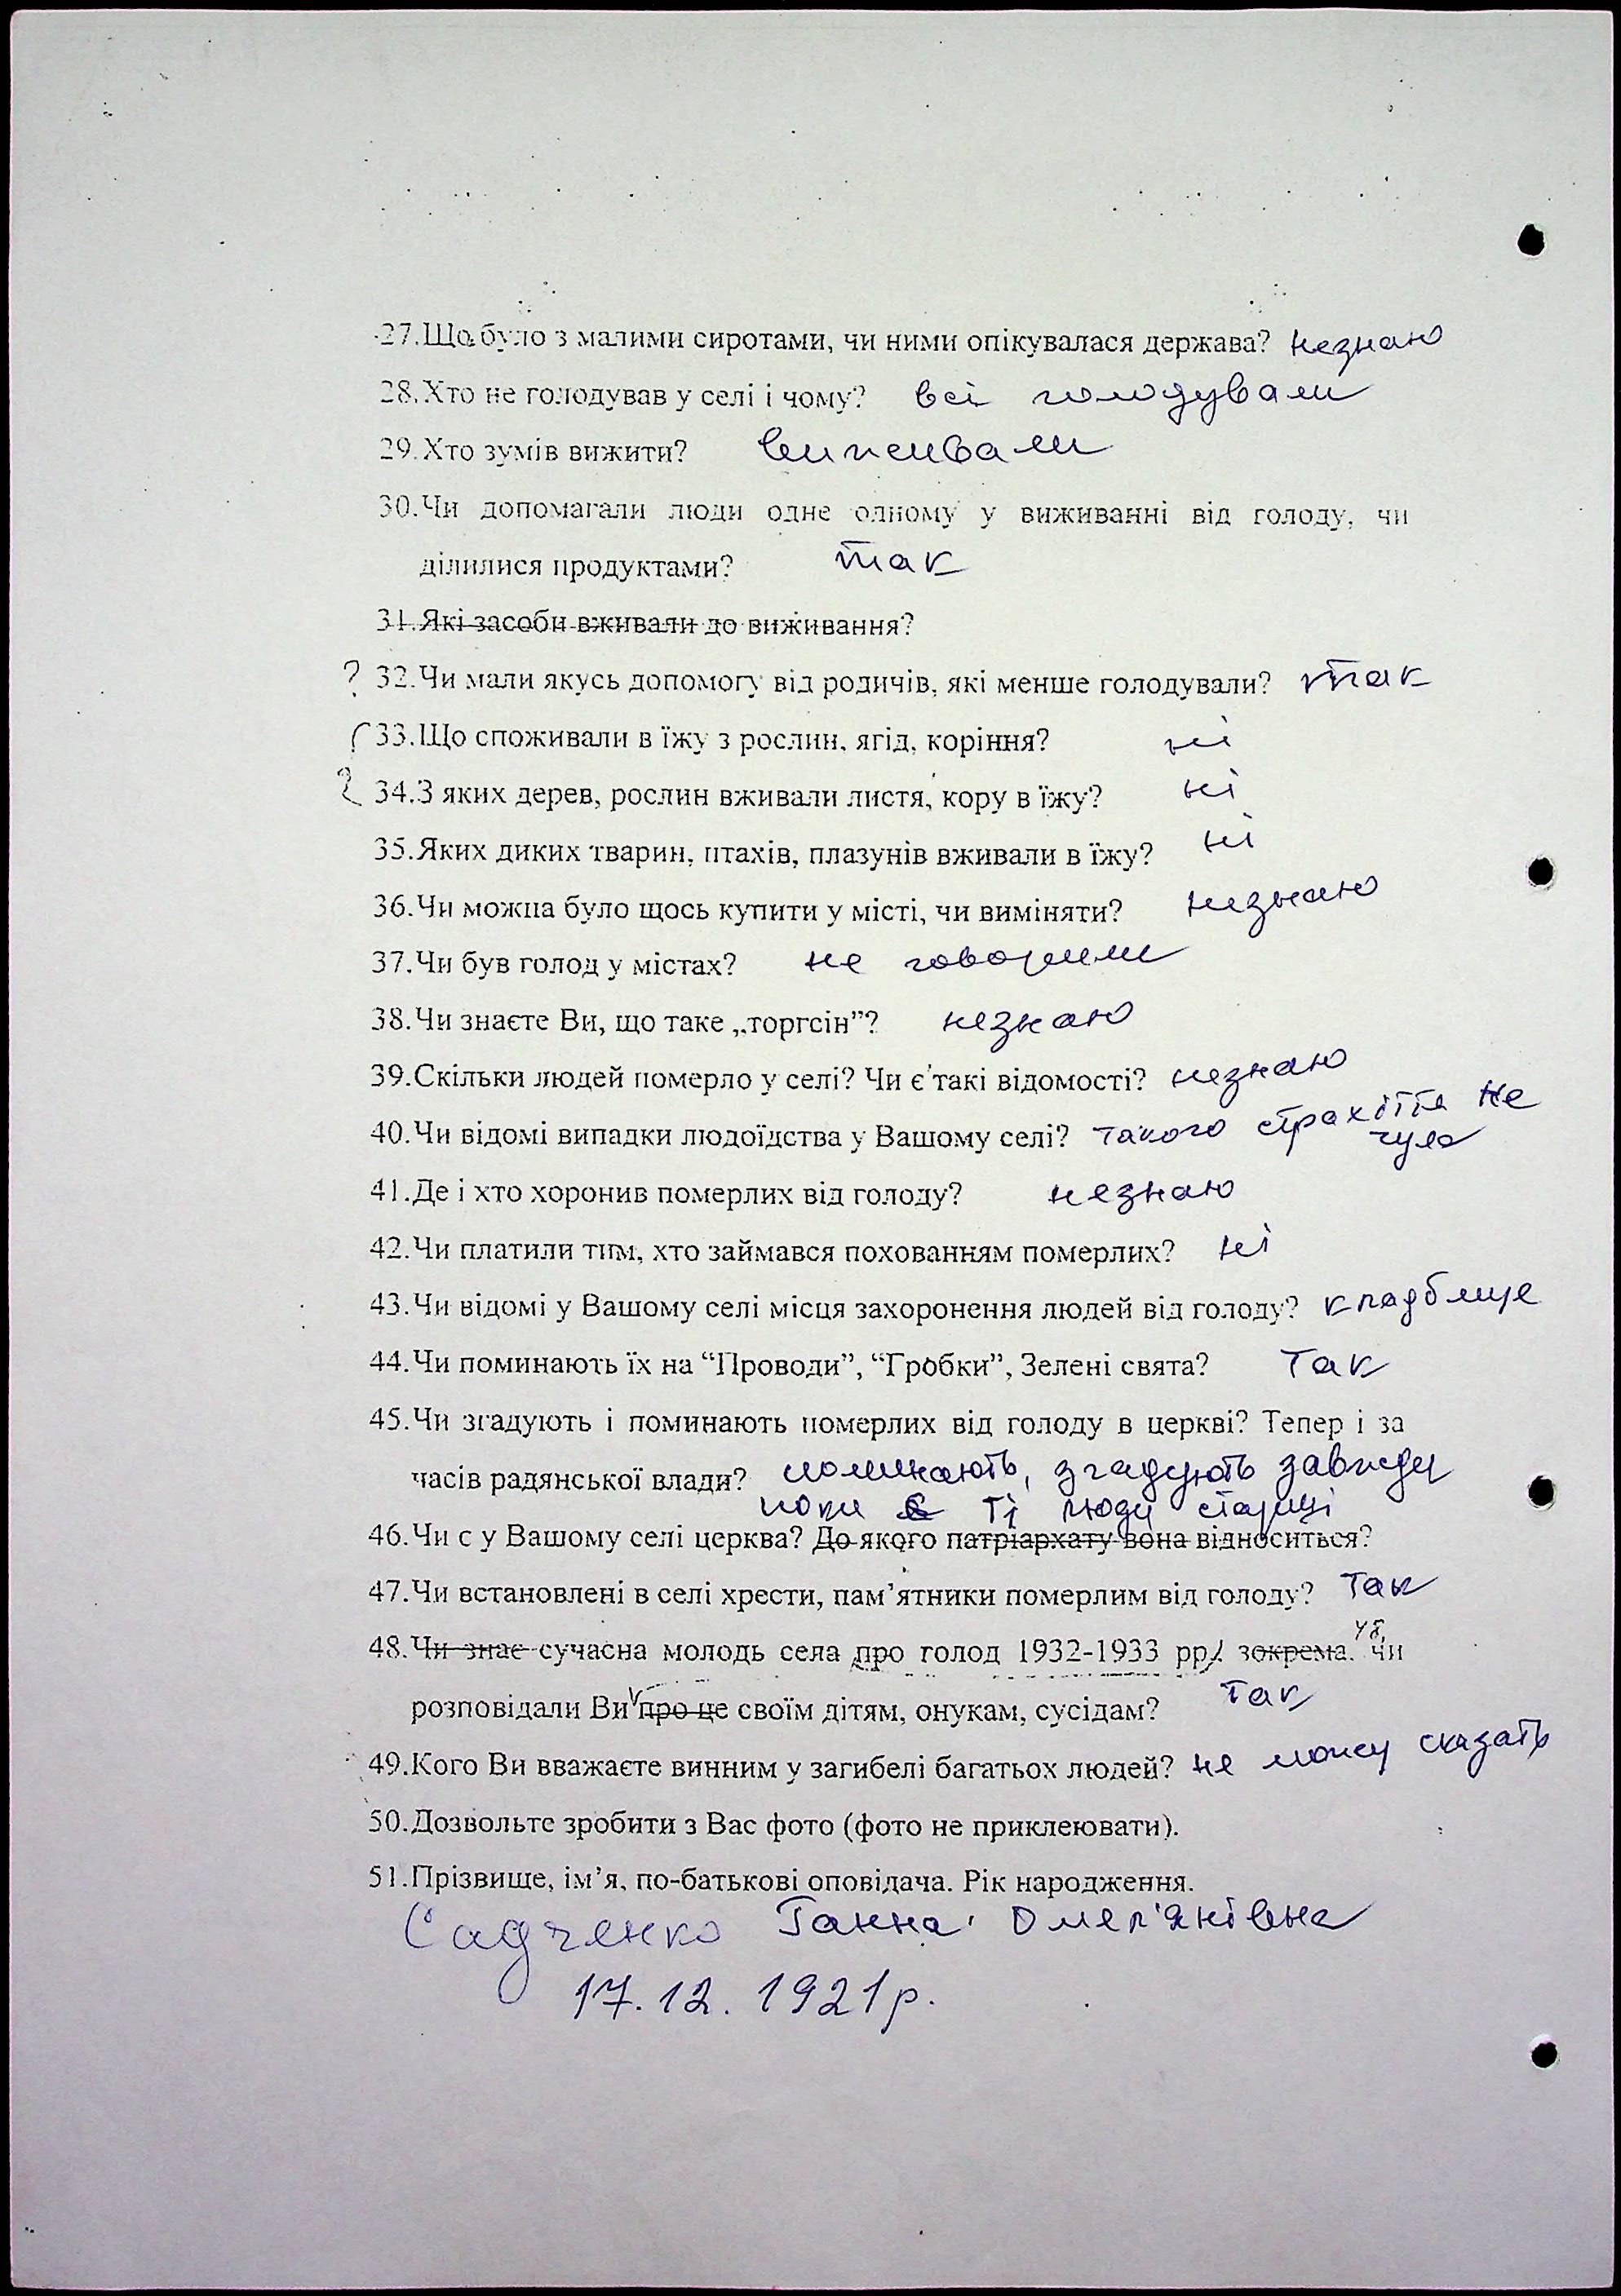 27.Що було з малими сиротами, чи ними опікувалася держава? незнаю
28.Хто не голодував у селі і чому? всі голодували
29.Хто зумів вижити?
30.Чи допомагали люди одне одному у виживанні від голоду, чи
ділилися продуктами? так
31.Які засоби вживали до виживання?
? 32.Чи мали якусь допомогу від родичів, які менше голодували? так
33.Що споживали в їжу з рослин, ягід, коріння? ні
34.З яких дерев, рослин вживали листя, кору в їжу? ні
35.Яких диких тварин, птахів, плазунів вживали в їжу? ні
36.Чи можна було щось купити у місті, чи виміняти? незнаю
37.Чи був голод у містах? не говорили
38.Чи знаєте Ви, що таке „торгсін”? незнаю
39.Скільки людей померло у селі? Чи є такі відомості? незнаю
40.Чи відомі випадки людоїдства у Вашому селі? такого страхіття не
чула
41.Де і хто хоронив померлих від голоду? незнаю
42.Чи платили тим, хто займався похованням померлих? ні
43.Чи відомі у Вашому селі місця захоронення людей від голоду? кладблище
44.Чи поминають їх на “Проводи”, “Гробки”, Зелені свята? Так
45.Чи згадують і поминають померлих від голоду в церкві? Тепер і за
часів радянської влади? поминають, згадують завжди
поки є ті люди старші
46.Чи є у Вашому селі церква? До якого патріархату вона відноситься?
47.Чи встановлені в селі хрести, пам’ятники померлим від голоду? Так
48.Чи знає сучасна молодь села про голод 1932-1933 рр. зокрема. чи
розповідали Ви про це своїм дітям, онукам, сусідам? Так
49.Кого Ви вважаєте винним у загибелі багатьох людей? не можу сказать
50.Дозвольте зробити з Вас фото (фото не приклеювати).
51.Прізвище, ім’я, по-батькові оповідача. Рік народження.
Садченко Ганна Омел'янівна
17.12.1921р.